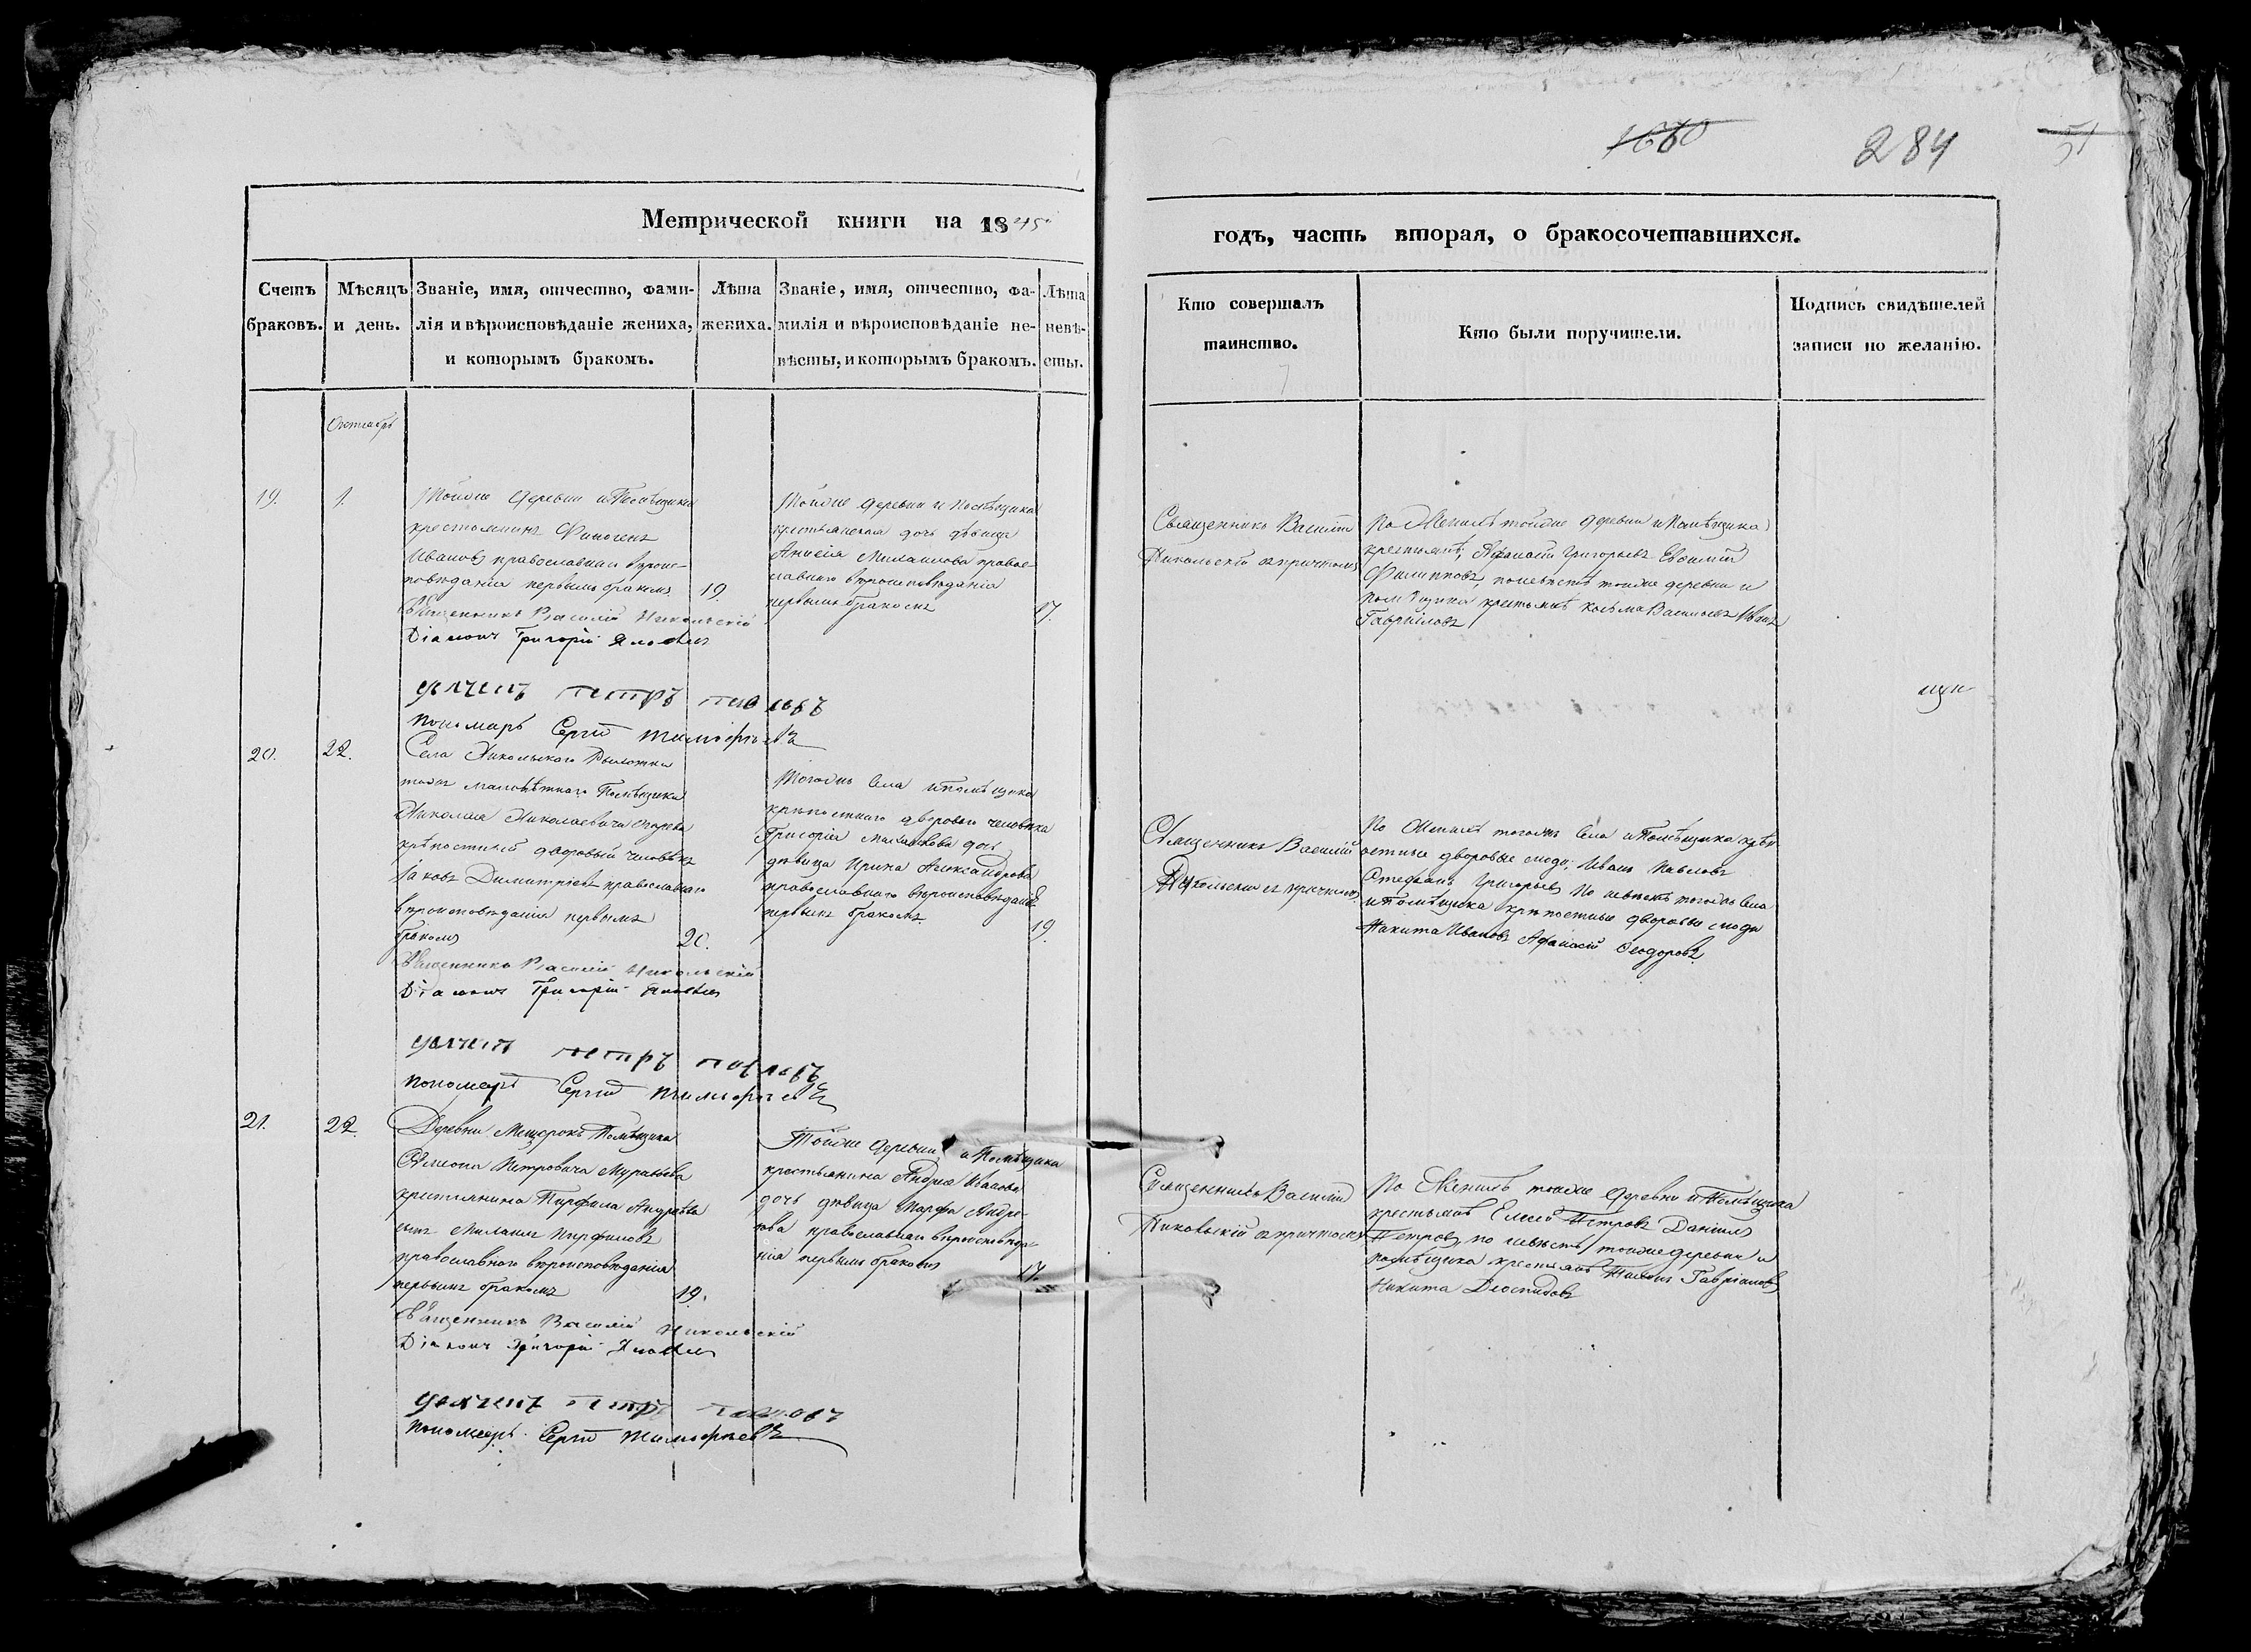 1660
284
51
Метрической книги на 1845
годъ, часть вторая, о бракосочетавшихся.
Счетъ браковъ.
Мѣсяцъ и день.
Званіе, имя, отчество, фами-
лія и вѣроисповѣданіе жениха,
и которымъ бракомъ.
Лѣта
жениха.
Званіе, имя, отчество, фа-
милія и вѣроисповѣданіе не-
вѣсты, и которымъ бракомъ.
Лѣта
невѣ-
сты.
Кто совершалъ
таинство.
Кто были поручители.
Подпись свидѣтелей
записи по желанію.
Октябрь
19.
1.
Тойже деревни и Помѣщика
крестьянинъ Финогенъ
Ивановъ православнаго вѣроис-
повѣданія первымъ бракомъ
19
Священникъ Василій Никольскій
Діаконъ Григорій
дьячекъ петръ павловъ
пономарь Сергій тимофѣевъ
Тойже деревни и помѣщика
крестьянская дочь дѣвица
Анисія Михаилова правос-
лавнаго вѣроисповѣданія
первымъ бракомъ
17.
Священникъ Василій
Никольскій съ причтомъ
По Женихѣ тойже деревни и Помѣщика
крестьянѣ, Афанасій Григорьевъ Евфимій
Филипповъ, по невѣстѣ тойже деревни и
помѣщика крестьянѣ Косьма Васильевъ Иванъ
Гавріиловъ
20.
22.
Села Никольскаго
тожъ малолѣтнаго Помѣщика
Николая Николаевича
крѣпостный дворовый человѣкъ
Іаковъ Димитріевъ православнаго
вѣроисповѣданія первымъ
бракомъ
20.
Священникъ Василій Никольскій
Діаконъ Григорій
дьячекъ петръ павловъ
пономарь Сергій тимофѣевъ
Тогожъ села и помѣщика
крѣпостнаго двороваго человѣка
Григорія дочь
дѣвица Ирина Александрова
православнаго вѣроисповѣданія
первымъ бракомъ
19.
Священникъ Василій
Никольскій съ причтомъ
По Женихѣ тогожъ села и Помѣщика крѣп
остные дворовые люди, Иванъ Павловъ
Стефанъ Григорьевъ По невѣстѣ тогожъ села
и Помѣщика крѣпостные дворовые люди
Никита Ивановъ Афанасій Ѳеодоровъ
21.
22.
Деревни Мещерокъ Помѣщика
Симеона Петровича Муравьева
крестьянина Парфена Андреева
сынъ Михаилъ Парфеновъ
православнаго вѣроисповѣданія
первымъ бракомъ
19.
Священникъ Василій Никольскій
Діаконъ Григорій
дьячекъ петръ павловъ
пономарь Сергій тимофѣевъ
Тойже деревни и Помѣщика
крестьянина Андрея Иванова
дочь дѣвица Марфа Андре-
ева православнаго вѣроисповѣда-
нія первымъ бракомъ
17.
Священникъ Василій
Никольскій съ причтомъ
По Женихѣ тойже деревни и Помѣщика
крестьянѣ Елисей Петровъ Даніилъ
Петровъ, по невѣстѣ тойже деревни и
помѣщика крестьянѣ Гавріиловъ
Никита